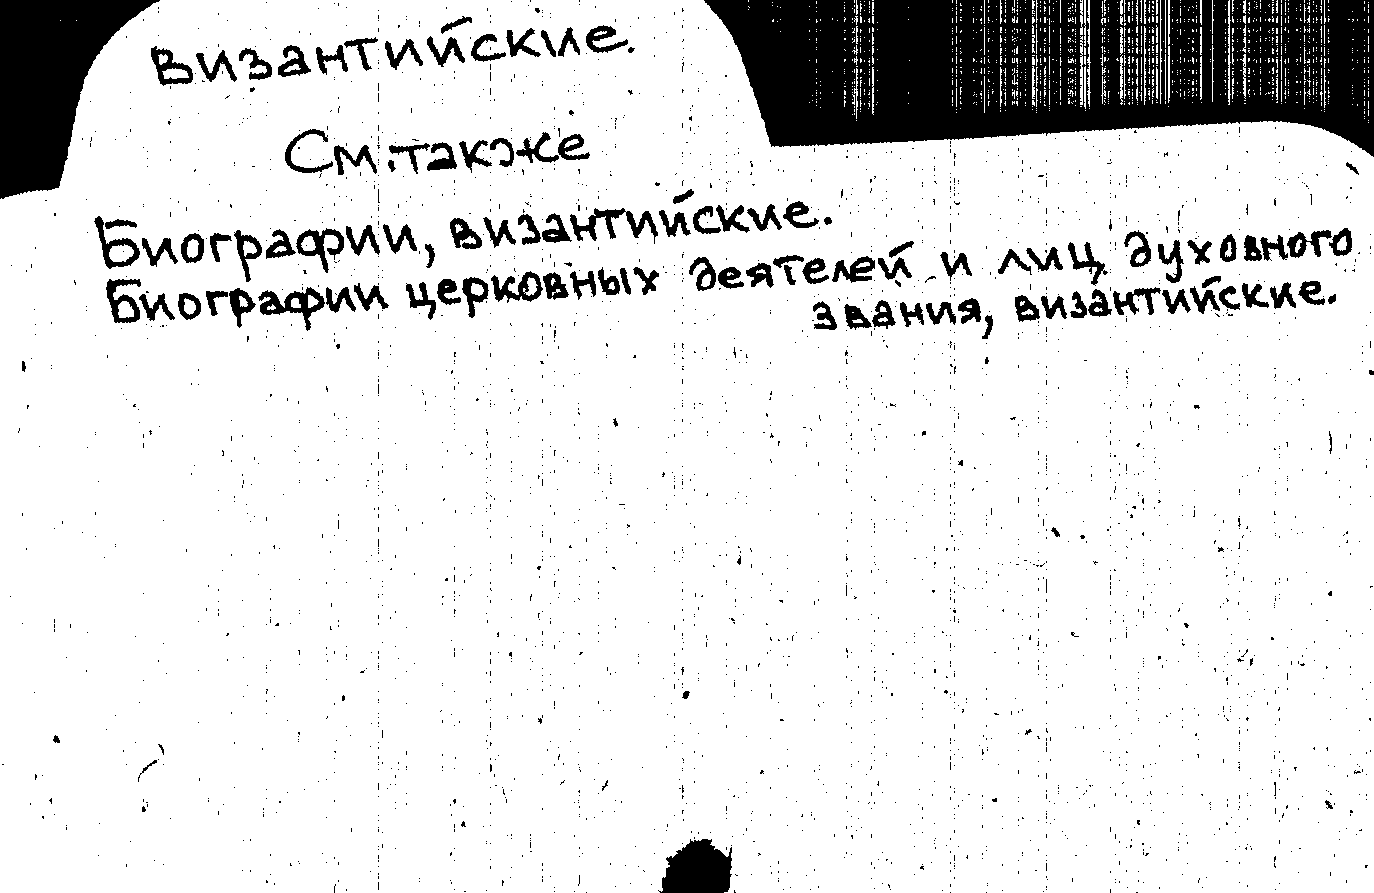 византийские.
См. также
Биографии, византийские.
Биографии церковных деятелей и лиц духовного
звания, византийские.